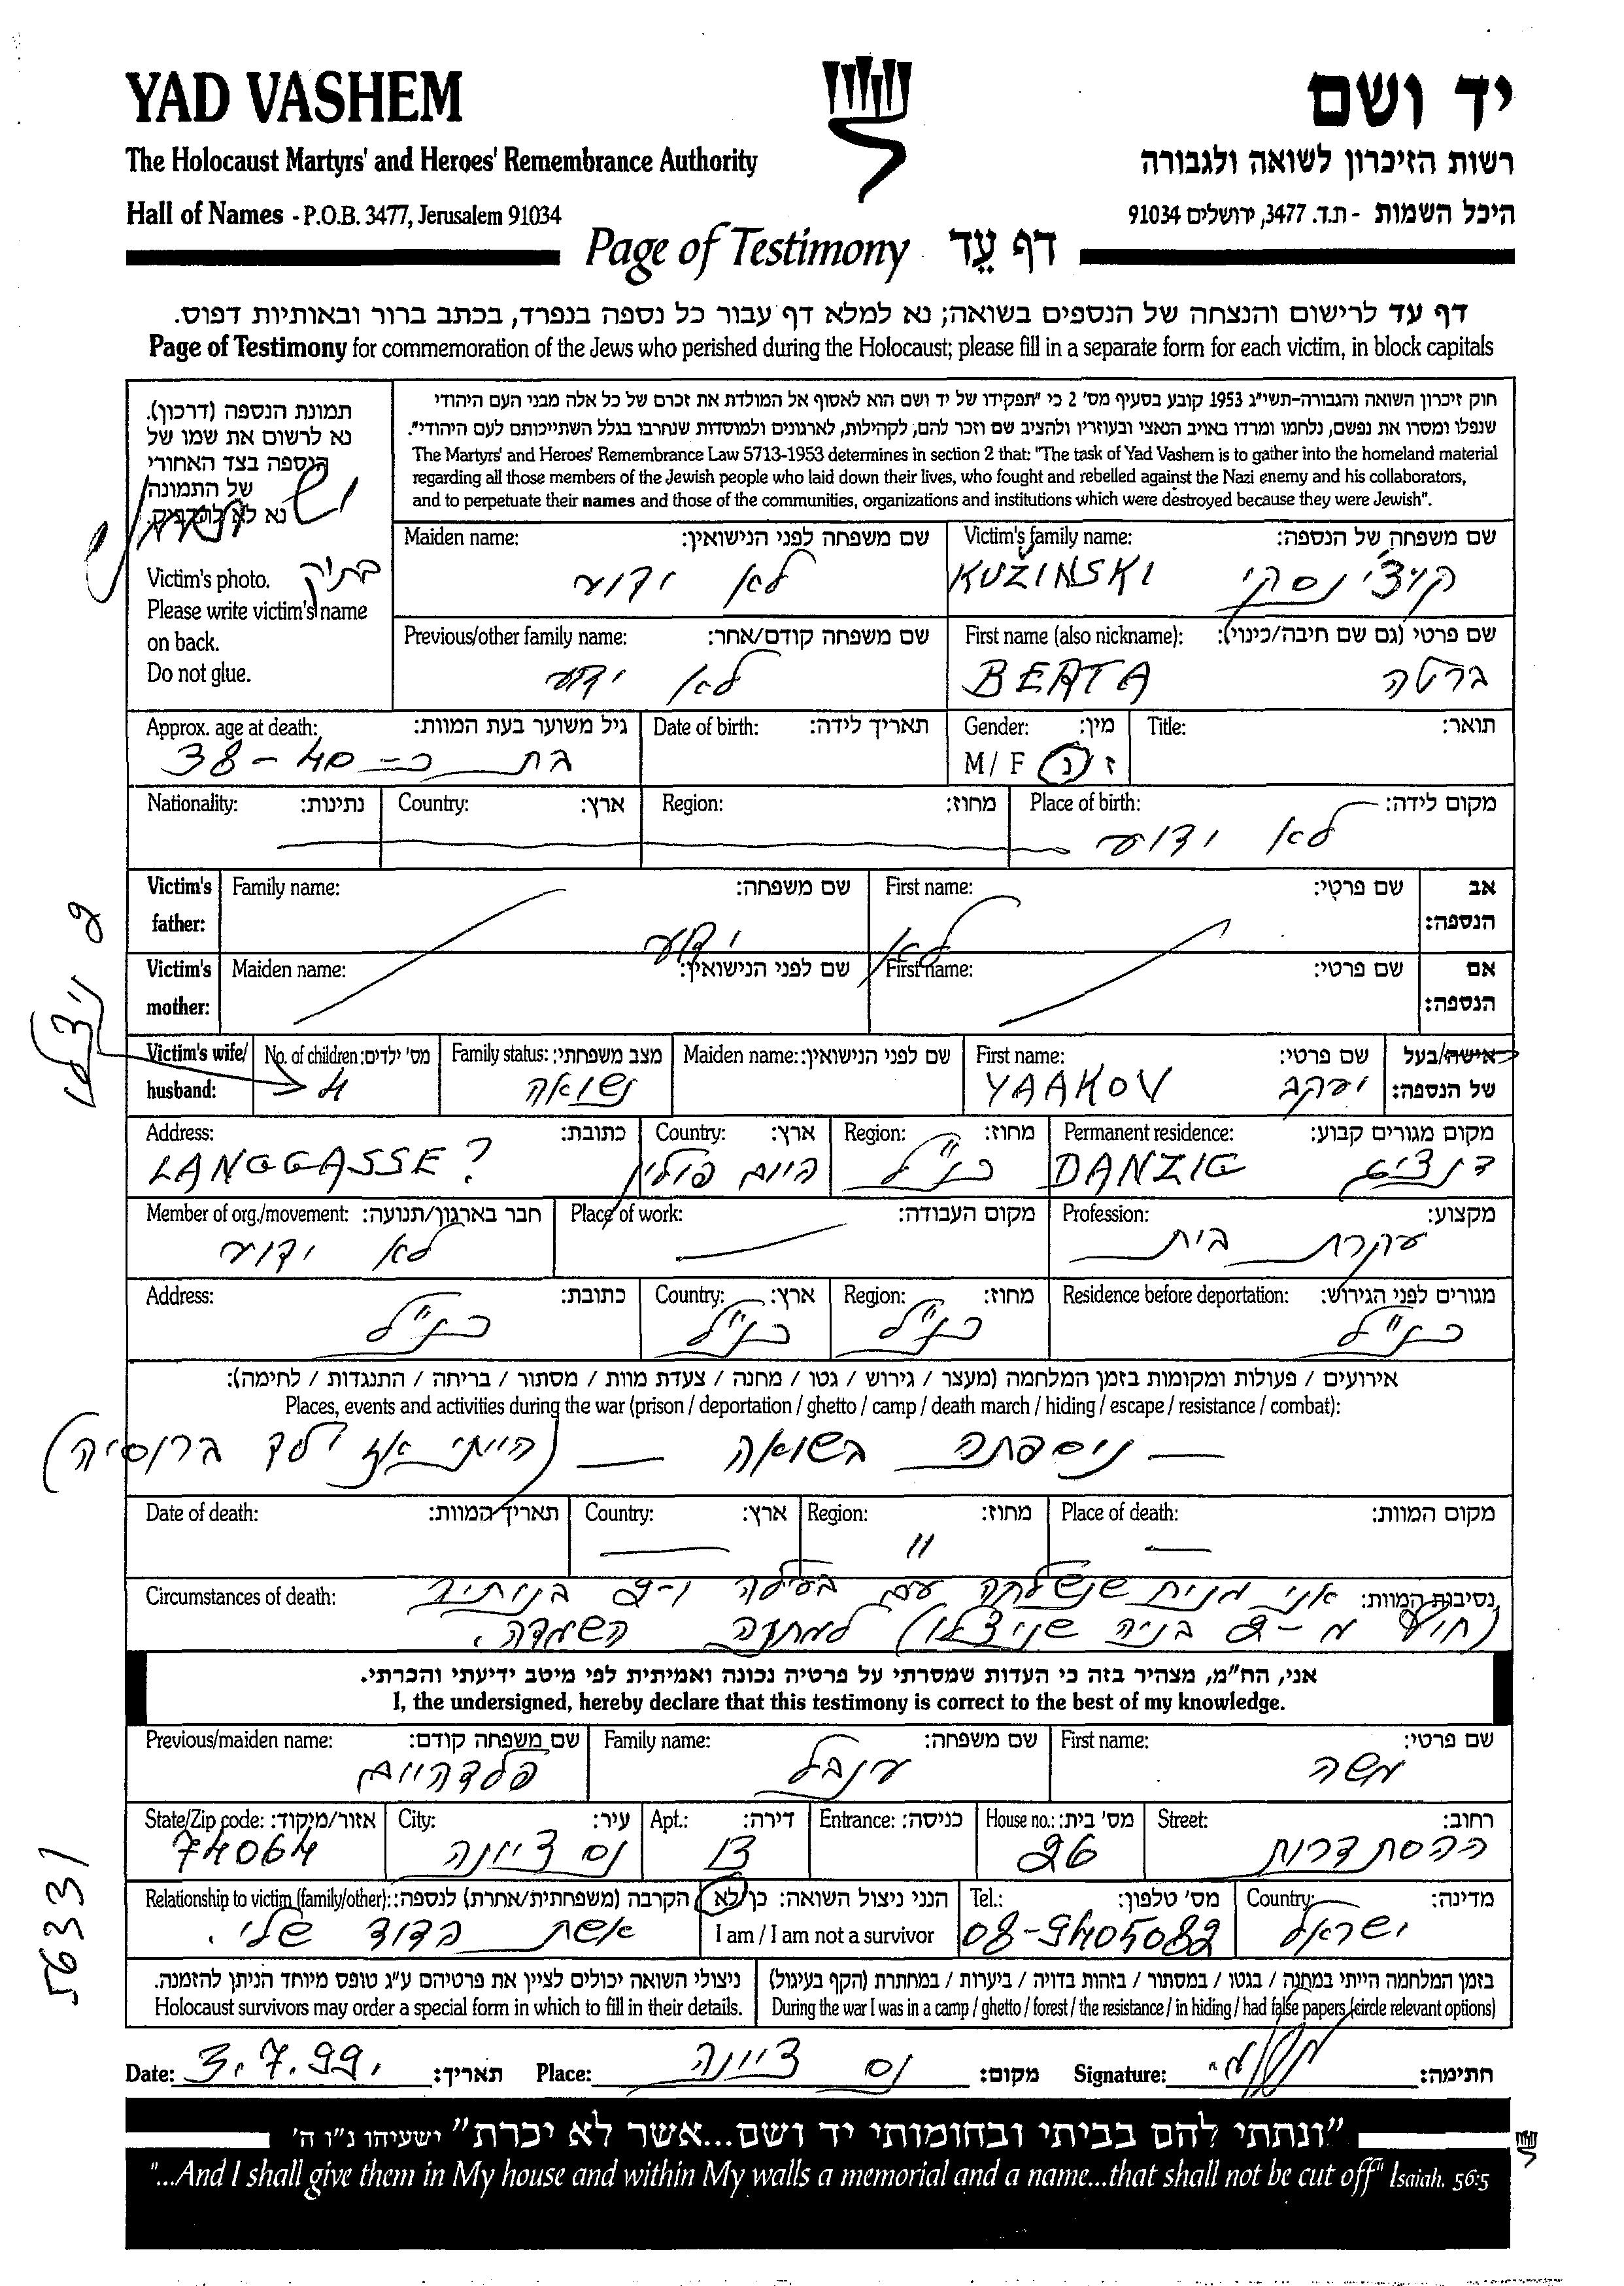 YAD VASHEM
יד ושם
The Holocaust Martyrs' and Heroes' Remembrance Authority
רשות הזיכרון לשואה ולגבורה
Hall of Names - P.O.B. 3477, Jerusalem 91034
היכל השמות - ת.ד. 3477, ירושלים 91034
Page of Testimony דף עֵד
דף עד לרישום והנצחה של הנספים בשואה; נא למלא דף עבור כל נספה בנפרד, בכתב ברור ובאותיות דפוס.
Page of Testimony for commemoration of the Jews who perished during the Holocaust; please fill in a separate form for each victim, in block capitals
תמונת הנספה (דרכון).
נא לרשום את שמו של
הנספה בצד האחורי
של התמונה
נא לא להדביק.
יש
בתיק
Victim's photo.
Please write victim's name
on back.
Do not glue.
חוק זיכרון השואה והגבורה-תשי"ג 1953 קובע בסעיף מס' 2 כי "תפקידו של יד ושם הוא לאסוף אל המולדת את זכרם של כל אלה מבני העם היהודי
שנפלו ומסרו את נפשם, נלחמו ומרדו באויב הנאצי ובעוזריו ולהציב שם וזכר להם, לקהילות, לארגונים ולמוסדות שנחרבו בגלל השתייכותם לעם היהודי".
The Martyrs' and Heroes' Remembrance Law 5713-1953 determines in section 2 that: "The task of Yad Vashem is to gather into the homeland material
regarding all those members of the Jewish people who laid down their lives, who fought and rebelled against the Nazi enemy and his collaborators,
and to perpetuate their names and those of the communities, organizations and institutions which were destroyed because they were Jewish".
Maiden name: שם משפחה לפני הנישואין:
לא ידוע
Victim's family name: שם משפחה של הנספה:
KUŽINSKI קוז'ינסקי
Previous/other family name: שם משפחה קודם/אחר:
לא ידוע
First name (also nickname): שם פרטי (גם שם חיבה/כינוי):
BERTA ברטה
Approx. age at death: גיל משוער בעת המוות:
בת כ- 38-40
Date of birth: תאריך לידה:
Gender: מין:
M / F ז / נ
Title: תואר:
Nationality: נתינות:
Country: ארץ:
Region: מחוז:
Place of birth: מקום לידה:
לא ידוע
Victim's father: Family name: שם משפחה: First name: שם פרטי: אב הנספה:
לא ידוע
Victim's mother: Maiden name: שם לפני הנישואין: First name: שם פרטי: אם הנספה:
2 ניצלו
Victim's wife/husband: No. of children: מס' ילדים: Family status: מצב משפחתי: Maiden name: שם לפני הנישואין: First name: שם פרטי: אישה/בעל של הנספה:
4 נשואה YAAKOV יעקב
Address: כתובת: Country: ארץ: Region: מחוז: Permanent residence: מקום מגורים קבוע:
LANGGASSE? היום פולין כנ"ל DANZIG דנציג
Member of org./movement: חבר בארגון/תנועה: Place of work: מקום העבודה: Profession: מקצוע:
לא ידוע עקרת בית
Address: כתובת: Country: ארץ: Region: מחוז: Residence before deportation: מגורים לפני הגירוש:
כנ"ל כנ"ל כנ"ל כנ"ל
אירועים / פעולות ומקומות בזמן המלחמה (מעצר / גירוש / גטו / מחנה / צעדת מוות / מסתור / בריחה / התנגדות / לחימה):
Places, events and activities during the war (prison / deportation / ghetto / camp / death march / hiding / escape / resistance / combat):
— ניספתה בשואה — (הייתי אז ילד ברוסיה)
Date of death: תאריך המוות: Country: ארץ: Region: מחוז: Place of death: מקום המוות:
— " —
Circumstances of death: נסיבות המוות:
אני מניח שנשלחה עם בעלה ו-2 בנותיה
(חוץ מ-2 בניה שניצלו) למחנה השמדה.
אני, הח"מ, מצהיר בזה כי העדות שמסרתי על פרטיה נכונה ואמיתית לפי מיטב ידיעתי והכרתי.
I, the undersigned, hereby declare that this testimony is correct to the best of my knowledge.
Previous/maiden name: שם משפחה קודם: Family name: שם משפחה: First name: שם פרטי:
פלדהיים ענבל משה
State/Zip code: אזור/מיקוד: City: עיר: Apt.: דירה: Entrance: כניסה: House no.: מס' בית: Street: רחוב:
74064 נס ציונה 13 26 ההסתדרות
Relationship to victim (family/other): הקרבה (משפחתית/אחרת) לנספה:
אשת הדוד שלי.
הנני ניצול השואה: כן/לא
I am / I am not a survivor
Tel.: מס' טלפון:
08-9405082
Country: מדינה:
ישראל
56331
ניצולי השואה יכולים לציין את פרטיהם ע"ג טופס מיוחד הניתן להזמנה.
Holocaust survivors may order a special form in which to fill in their details.
בזמן המלחמה הייתי במחנה / בגטו / במסתור / בזהות בדויה / ביערות / במחתרת (הקף בעיגול)
During the war I was in a camp / ghetto / forest / the resistance / in hiding / had false papers (circle relevant options)
Date: 3.7.99. תאריך: Place: נס ציונה מקום: Signature: חתימה:
"ונתתי להם בביתי ובחומותי יד ושם...אשר לא יכרת" ישעיהו נ"ו ה'
"...And I shall give them in My house and within My walls a memorial and a name...that shall not be cut off" Isaiah, 56:5